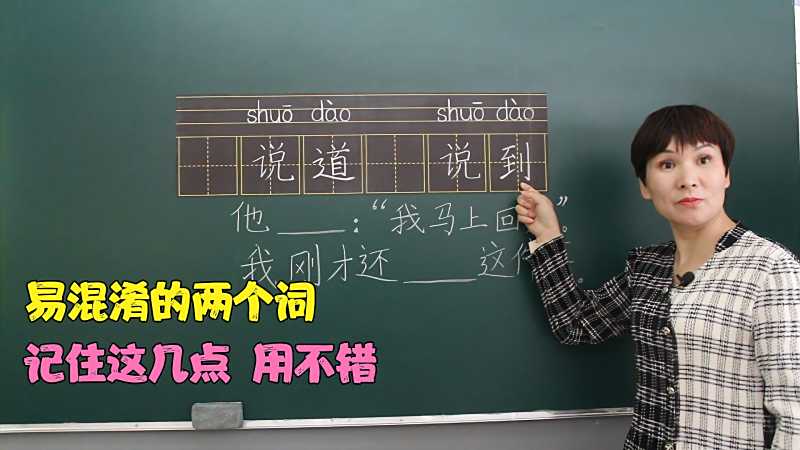 shuō dào shuō dào
说道 说到
他____:“我马上回”。
我刚才还____这。
易混淆的两个词
记住这几点 用不错